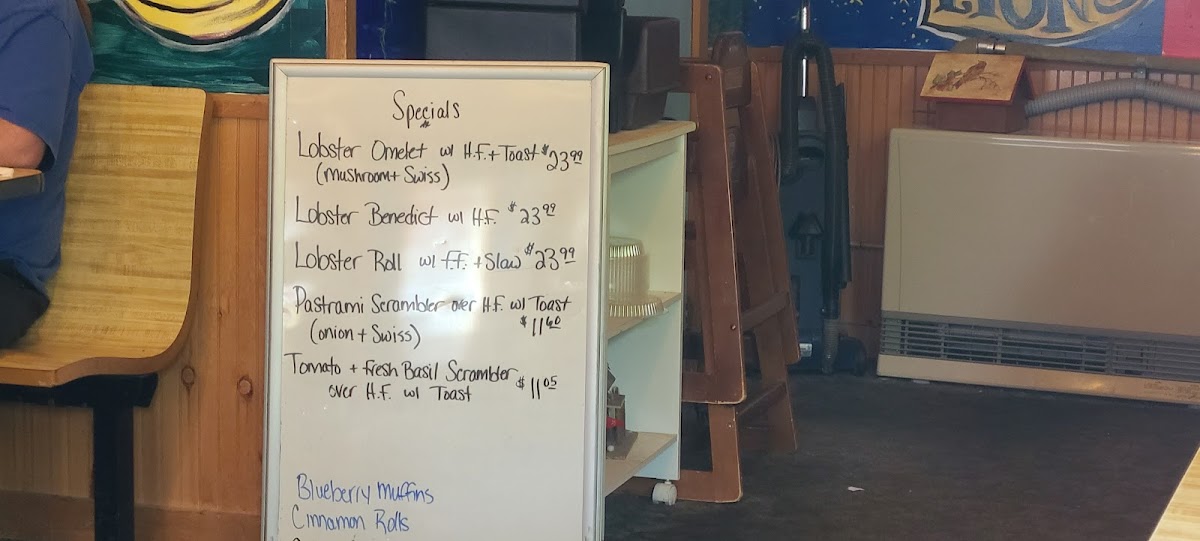 Specials
Lobster Omelet w/ H.F. + Toast $23.99
(mushroom + Swiss)
Lobster Benedict w/ H.F. $23.99
Lobster Roll w/ f.f. + Slaw $23.99
Pastrami Scrambler over H.F. w/ Toast
(onion + Swiss) $11.60
Tomato + Fresh Basil Scrambler
over H.F. w/ Toast $11.05
Blueberry Muffins
Cinnamon Rolls
LIONS